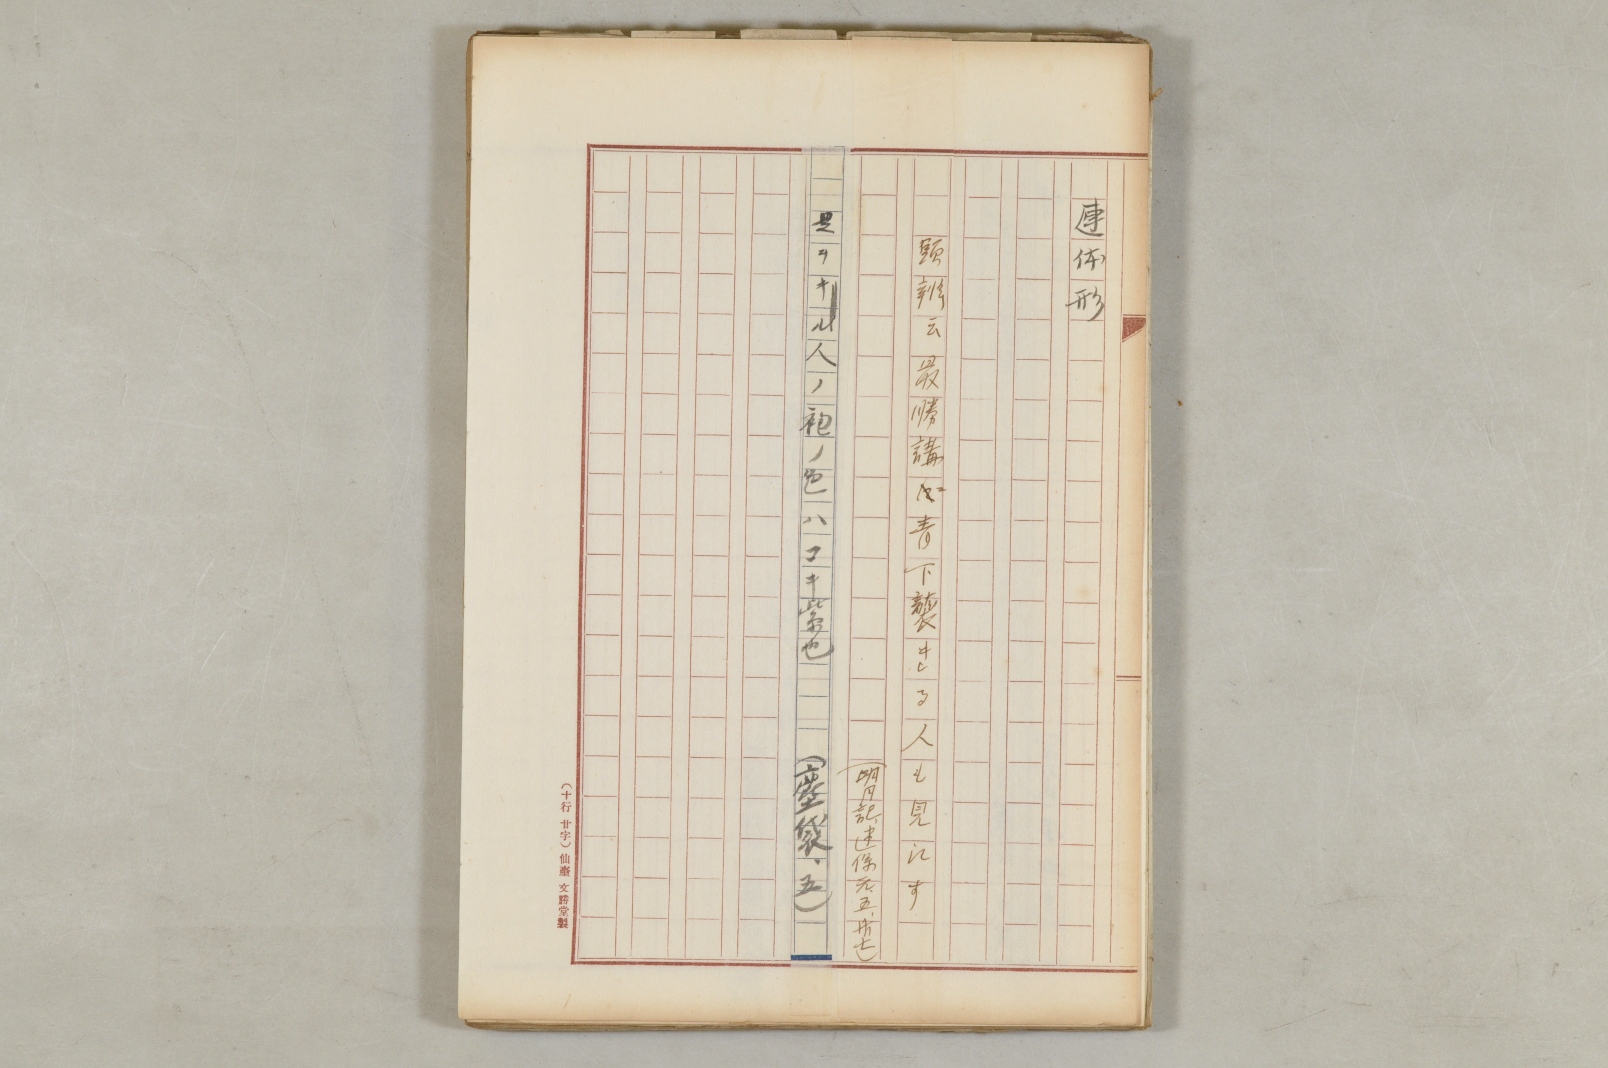 連体形
頭辨云最勝講青下襲る人も見江す
(明月記、建保元、五、廿七)
是ヲキル人ノ袍ノ色ハコキ紫也 (塵袋、五)
(十行 廿字) 仙臺 文勝堂製